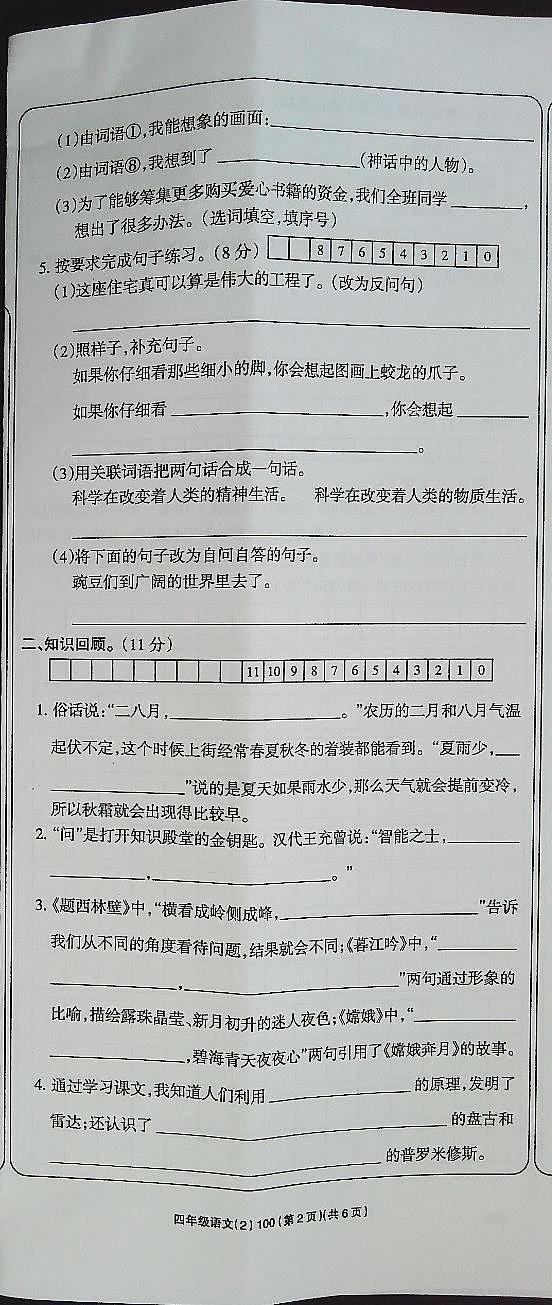 (1)由词语①,我能想象的画面:
(2)由词语⑧,我想到了 (神话中的人物)。
(3)为了能够筹集更多购买爱心书籍的资金,我们全班同学 ,
想出了很多办法。(选词填空,填序号)
5. 按要求完成句子练习。(8 分) 8 7 6 5 4 3 2 1 0
(1)这座住宅真可以算是伟大的工程了。(改为反问句)
(2)照样子,补充句子。
如果你仔细看那些细小的脚,你会想起图画上蛟龙的爪子。
如果你仔细看 ,你会想起
。
(3)用关联词语把两句话合成一句话。
科学在改变着人类的精神生活。 科学在改变着人类的物质生活。
(4)将下面的句子改为自问自答的句子。
豌豆们到广阔的世界里去了。
二、知识回顾。(11 分)
11 10 9 8 7 6 5 4 3 2 1 0
1. 俗话说:“二八月, 。”农历的二月和八月气温
起伏不定,这个时候上街经常春夏秋冬的着装都能看到。“夏雨少,
”说的是夏天如果雨水少,那么天气就会提前变冷,
所以秋霜就会出现得比较早。
2. “问”是打开知识殿堂的金钥匙。汉代王充曾说:“智能之士,
, 。”
3.《题西林壁》中,“横看成岭侧成峰, ”告诉
我们从不同的角度看待问题,结果就会不同;《暮江吟》中,“
, ”两句通过形象的
比喻,描绘露珠晶莹、新月初升的迷人夜色;《嫦娥》中,“
,碧海青天夜夜心”两句引用了《嫦娥奔月》的故事。
4. 通过学习课文,我知道人们利用 的原理,发明了
雷达;还认识了 的盘古和
的普罗米修斯。
四年级语文(2) 100 (第 2 页)(共 6 页)